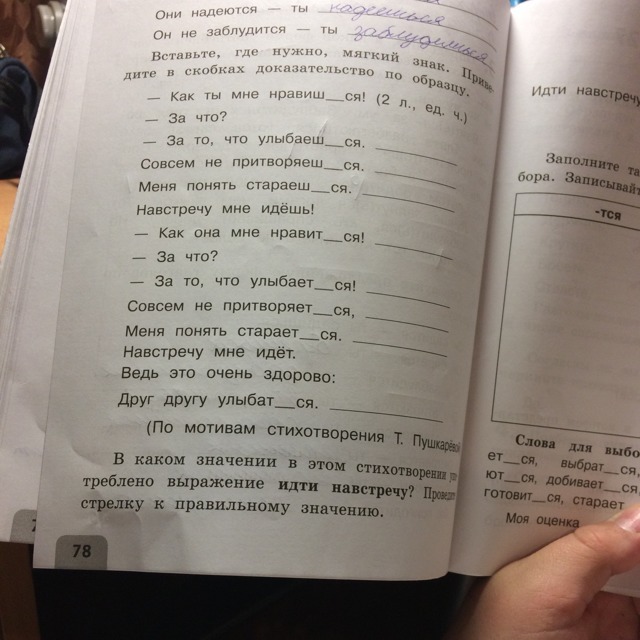 Они надеются — ты надеешься
Он не заблудится — ты заблудишься
Вставьте, где нужно, мягкий знак. Приве-
дите в скобках доказательство по образцу.
— Как ты мне нравиш__ся! (2 л., ед. ч.)
— За что?
— За то, что улыбаеш__ся. ________
Совсем не притворяеш__ся. ________
Меня понять стараеш__ся. ________
Навстречу мне идёшь!
— Как она мне нравит__ся! ________
— За что?
— За то, что улыбает__ся! ________
Совсем не притворяет__ся, ________
Меня понять старает__ся. ________
Навстречу мне идёт.
Ведь это очень здорово:
Друг другу улыбат__ся. ________
(По мотивам стихотворения Т. Пушкарёвой
В каком значении в этом стихотворении упо-
треблено выражение идти навстречу? Проведите
стрелку к правильному значению.
78
Идти навстречу
Заполните та
бора. Записывайт
-тся
Слова для выбо
ет__ся, выбрат__ся,
ют__ся, добивает__ся,
готовит__ся, старает
Моя оценка